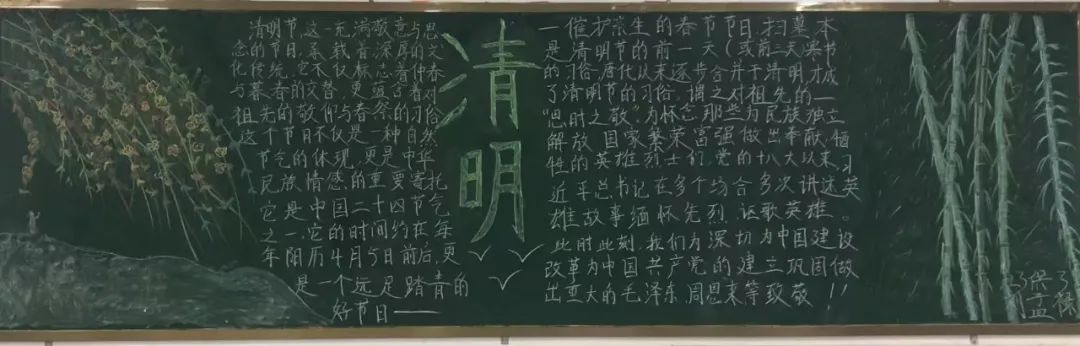 清明节,这一充满敬意与思
念的节日,承载着深厚的文
化传统,它不仅标志着仲春
与暮春的交替,更蕴含着对
祖先的敬仰与祭祭的习俗
这个节日不仅是一种自然
节气的体现,更是中华
民族情感的重要寄托
它是中国二十四节气
之一,它的时间约在每
年阳历4月5日前后,更
是一个远足踏青的
好节日——
清明
一催护宗生的春节节日,扫墓本
是清明节的前一天(或前三天)寒书
的习俗,唐代以来逐步合并于清明,才成
了清明节的习俗,谓之对祖先的—
"思时之敬"为怀念那些为民族独立
解放 国家繁荣富强做出奉献、牺
牲的英雄烈士们,党的十八大以来,习
近平总书记在多个场合多次讲述英
雄故事缅怀先烈、讴歌英雄。
此时此刻,我们为深切为中国建设
改革为中国共产党的建立巩固做
出重大的毛泽东,周恩来等致敬!!